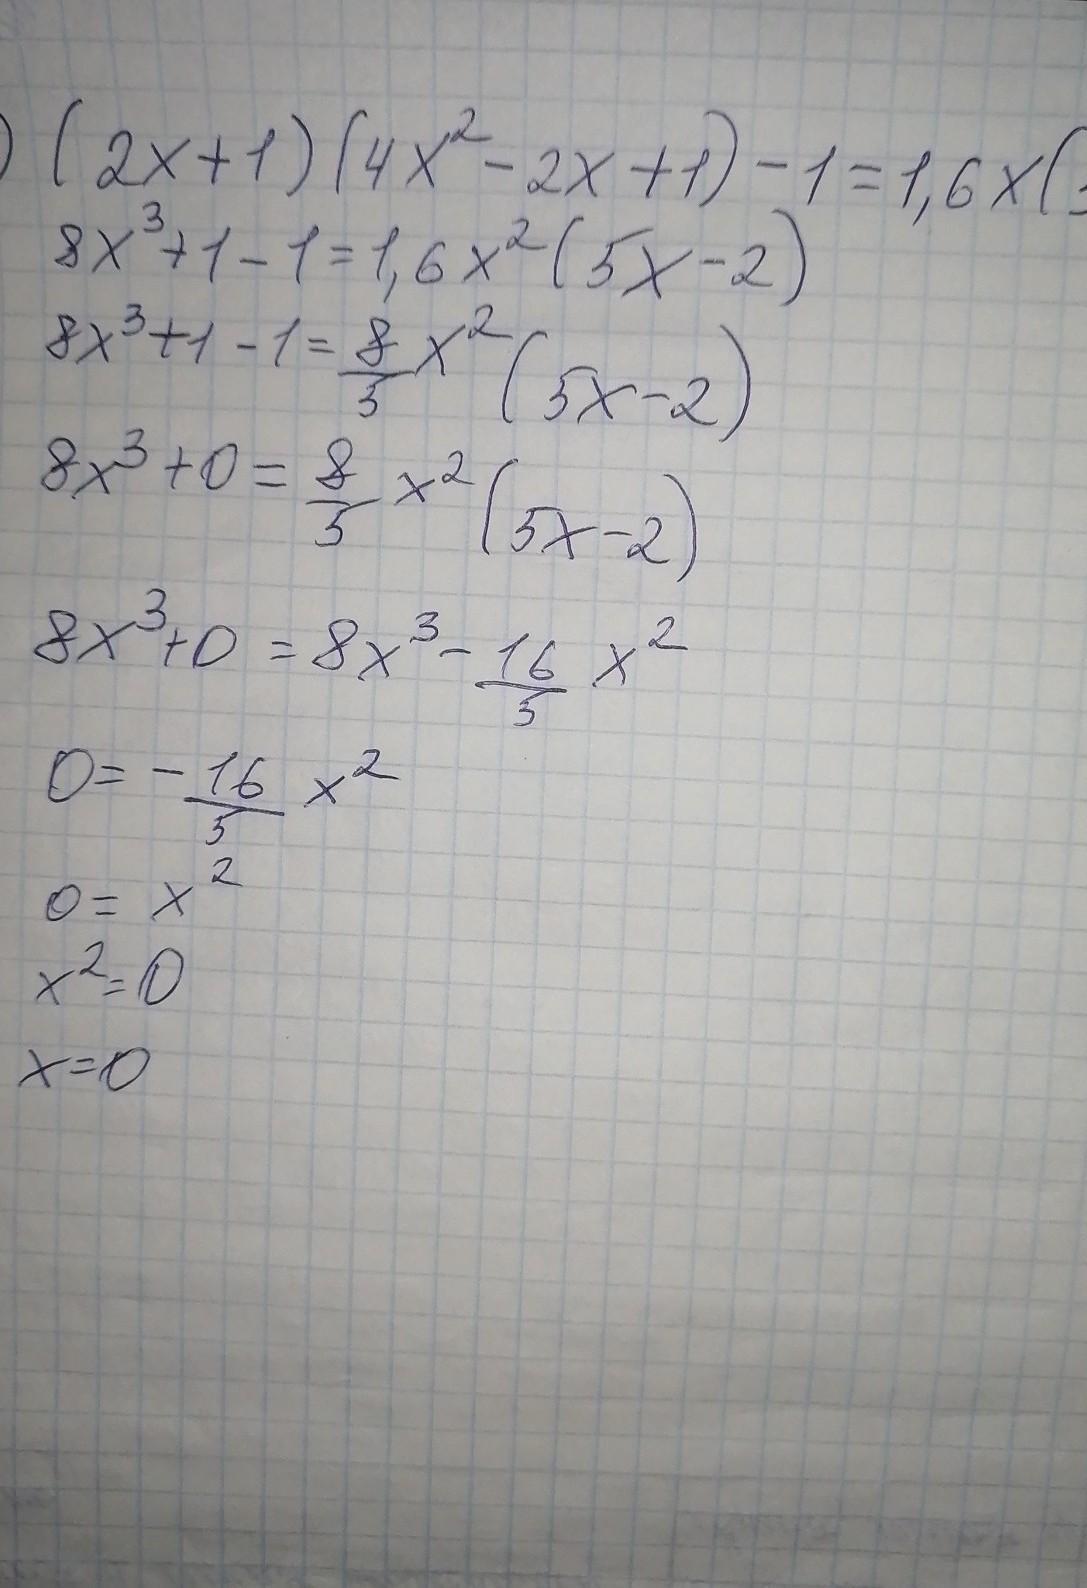 ) (2x+1)(4x²-2x+1)-1=1,6x(
8x³+1-1=1,6x²(5x-2)
8x³+1-1=8/5x²(5x-2)
8x³+0=8/5x²(5x-2)
8x³+0=8x³-16/5x²
0=-16/5x²
0=x²
x²=0
x=0